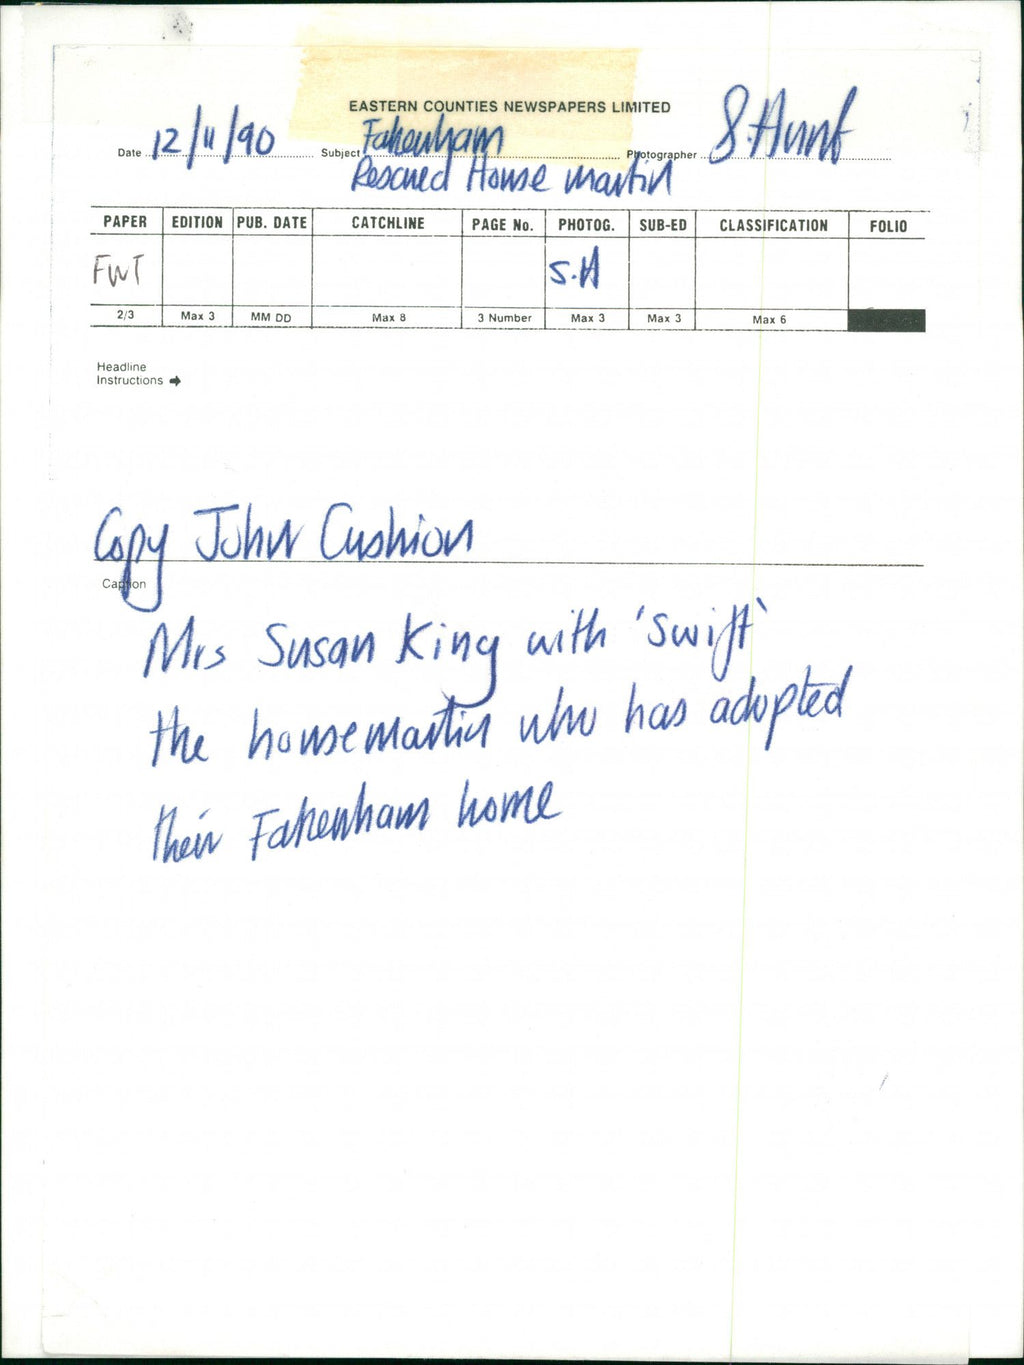 EASTERN COUNTIES NEWSPAPERS LIMITED
Date 12/11/90 Subject Fakenham Photographer S. Hunt
Rescued House martin
PAPER EDITION PUB. DATE CATCHLINE PAGE No. PHOTOG. SUB-ED CLASSIFICATION FOLIO
FWT S.H
2/3 Max 3 MM DD Max 8 3 Number Max 3 Max 3 Max 6
Headline
Instructions
Copy John Cushion
Caption
Mrs Susan King with 'swift'
the housemartin who has adopted
their Fakenham home